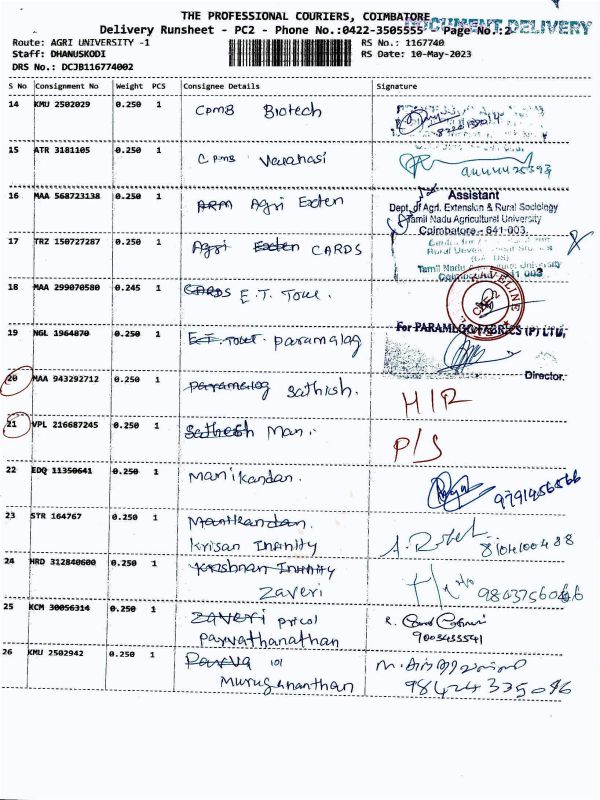 THE PROFESSIONAL COURIERS, COIMBATORE
DOCUMENT DELIVERY
Delivery Runsheet - PC2 - Phone No.:0422-3505555 - Page No.:2
Route: AGRI UNIVERSITY -1 RS No.: 1167740
Staff: DHANUSKODI RS Date: 10-May-2023
DRS No.: DCJB116774002
S No Consignment No Weight PCS Consignee Details Signature
14 KMU 2502029 0.250 1 CPMB Biotech
15 ATR 3181105 0.250 1 CPMB Varahasi
16 MAA 568723138 0.250 1 ARM Agri Exten
Assistant
Dept. of Agri. Extension & Rural Sociology
Tamil Nadu Agricultural University
Coimbatore - 641 003.
17 TRZ 150727287 0.250 1 Agri Exten CARDS
Tamil Nadu University
18 MAA 299070580 0.245 1 CARDS E.T. Tour.
19 NGL 1964870 0.250 1 E.T. Tour paramalag
For PARAMLGG FABRICS (P) LTD,
Director.
20 MAA 943292712 0.250 1 paramalag Sathish. H/R
21 VPL 216687245 0.250 1 Sathesh Man. P/S
22 EDQ 11350641 0.250 1 Manikandan. 9791456566
23 STR 164767 0.250 1 Manikandan.
Krisan Infinity 8104100488
24 HRD 312840600 0.250 1 Krishnan Infinity
Zaveri
25 KCM 30056314 0.250 1 Zaveri pricol
Parvathanathan 9003433541
26 KMU 2502942 0.250 1 Parva 101
Murugananthan 98424335096